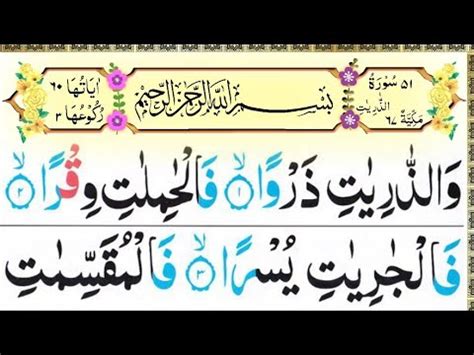 ٥١ سُوْرَةُ الذّٰرِيٰتِ مَكِّيَّةٌ ٦٧
بِسْمِ اللهِ الرَّحْمٰنِ الرَّحِيْمِ
اٰيَاتُهَا ٦٠ رُكُوْعُهَا ٣
وَالذّٰرِيٰتِ ذَرْوًا ۙ﴿١﴾ فَالْحٰمِلٰتِ وِقْرًا ۙ﴿٢﴾
فَالْجٰرِيٰتِ يُسْرًا ۙ﴿٣﴾ فَالْمُقَسِّمٰتِ